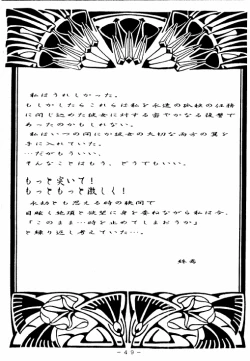 私はうれしかった。
もしかしたらこれらは私を永遠の孤独の任務
に閉じ込めた彼女に対する密やかなる復讐で
あったのかもしれない。
私はいつの間にか彼女の大切な両方の翼を
手に入れていた。
…だがもういい。
そんなことはもう、どうでもいい。
もっと突いて!
もっともっと激しく!
永劫とも思える時の狭間で
目眩く絶頂と欲望に身を委ねながら私は今、
「このまま…時を止めてしまおうか」
と繰り返し考えていた…。
-49-